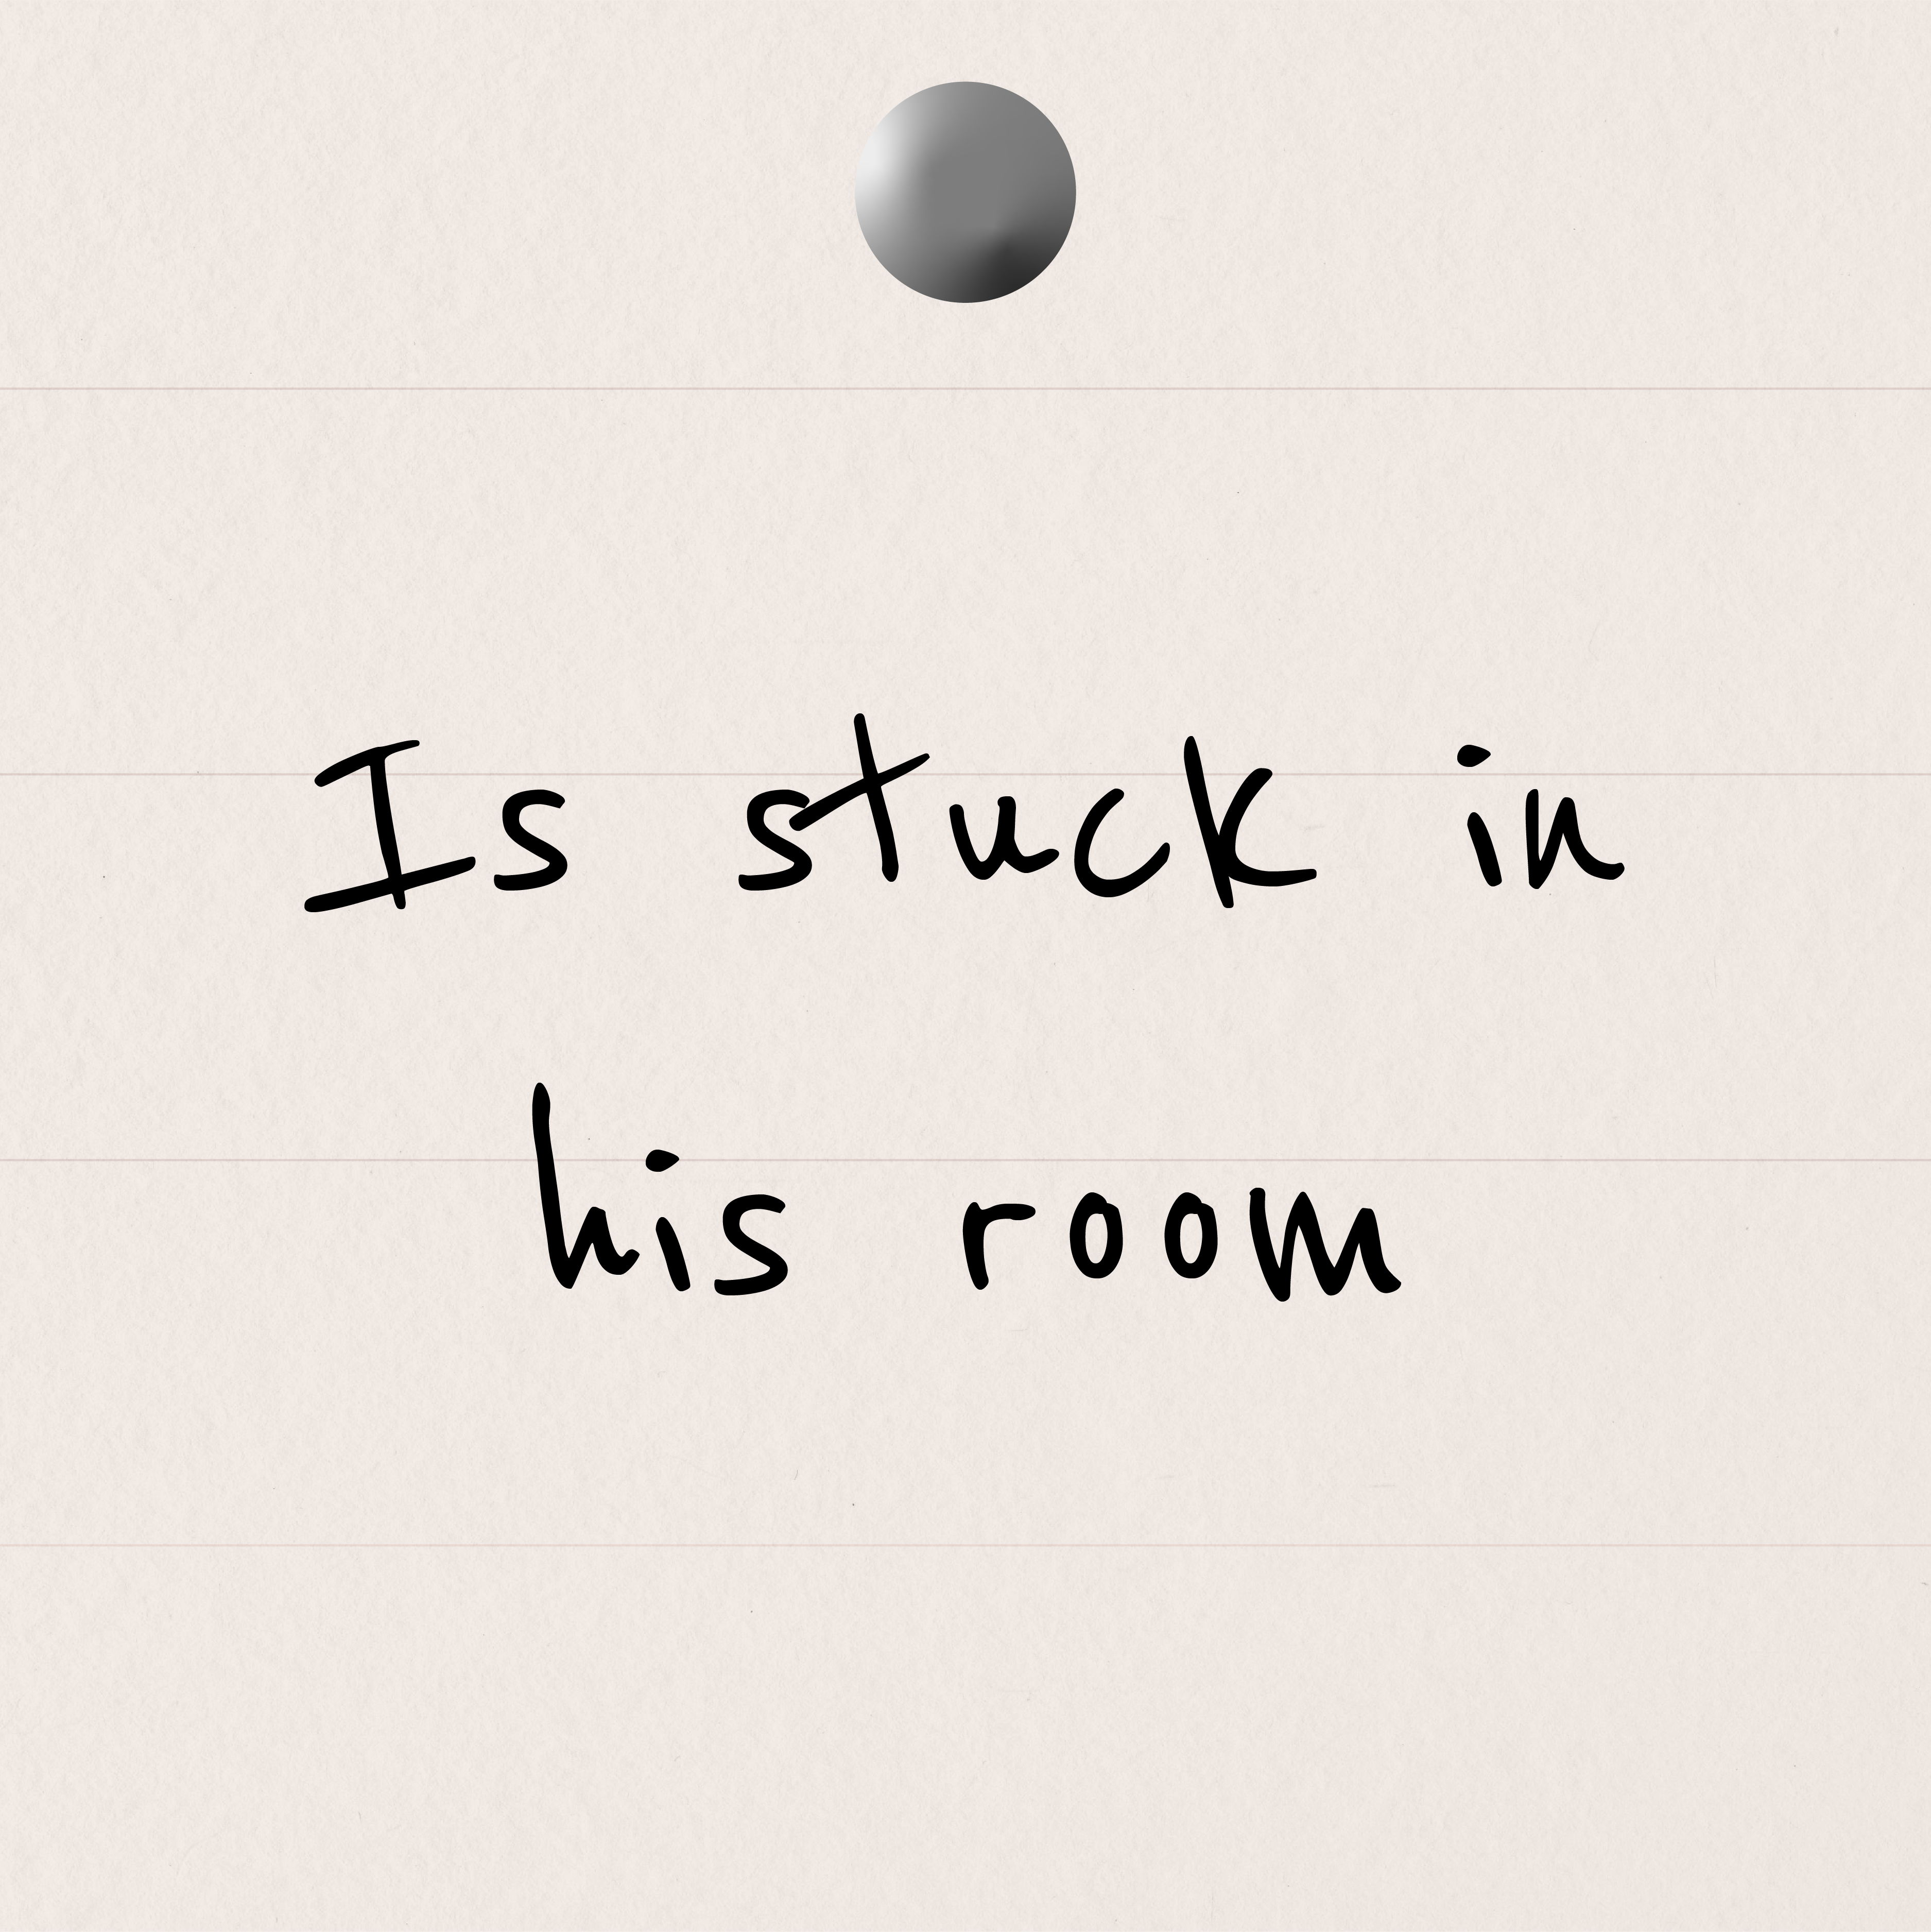 Is stuck in
his room